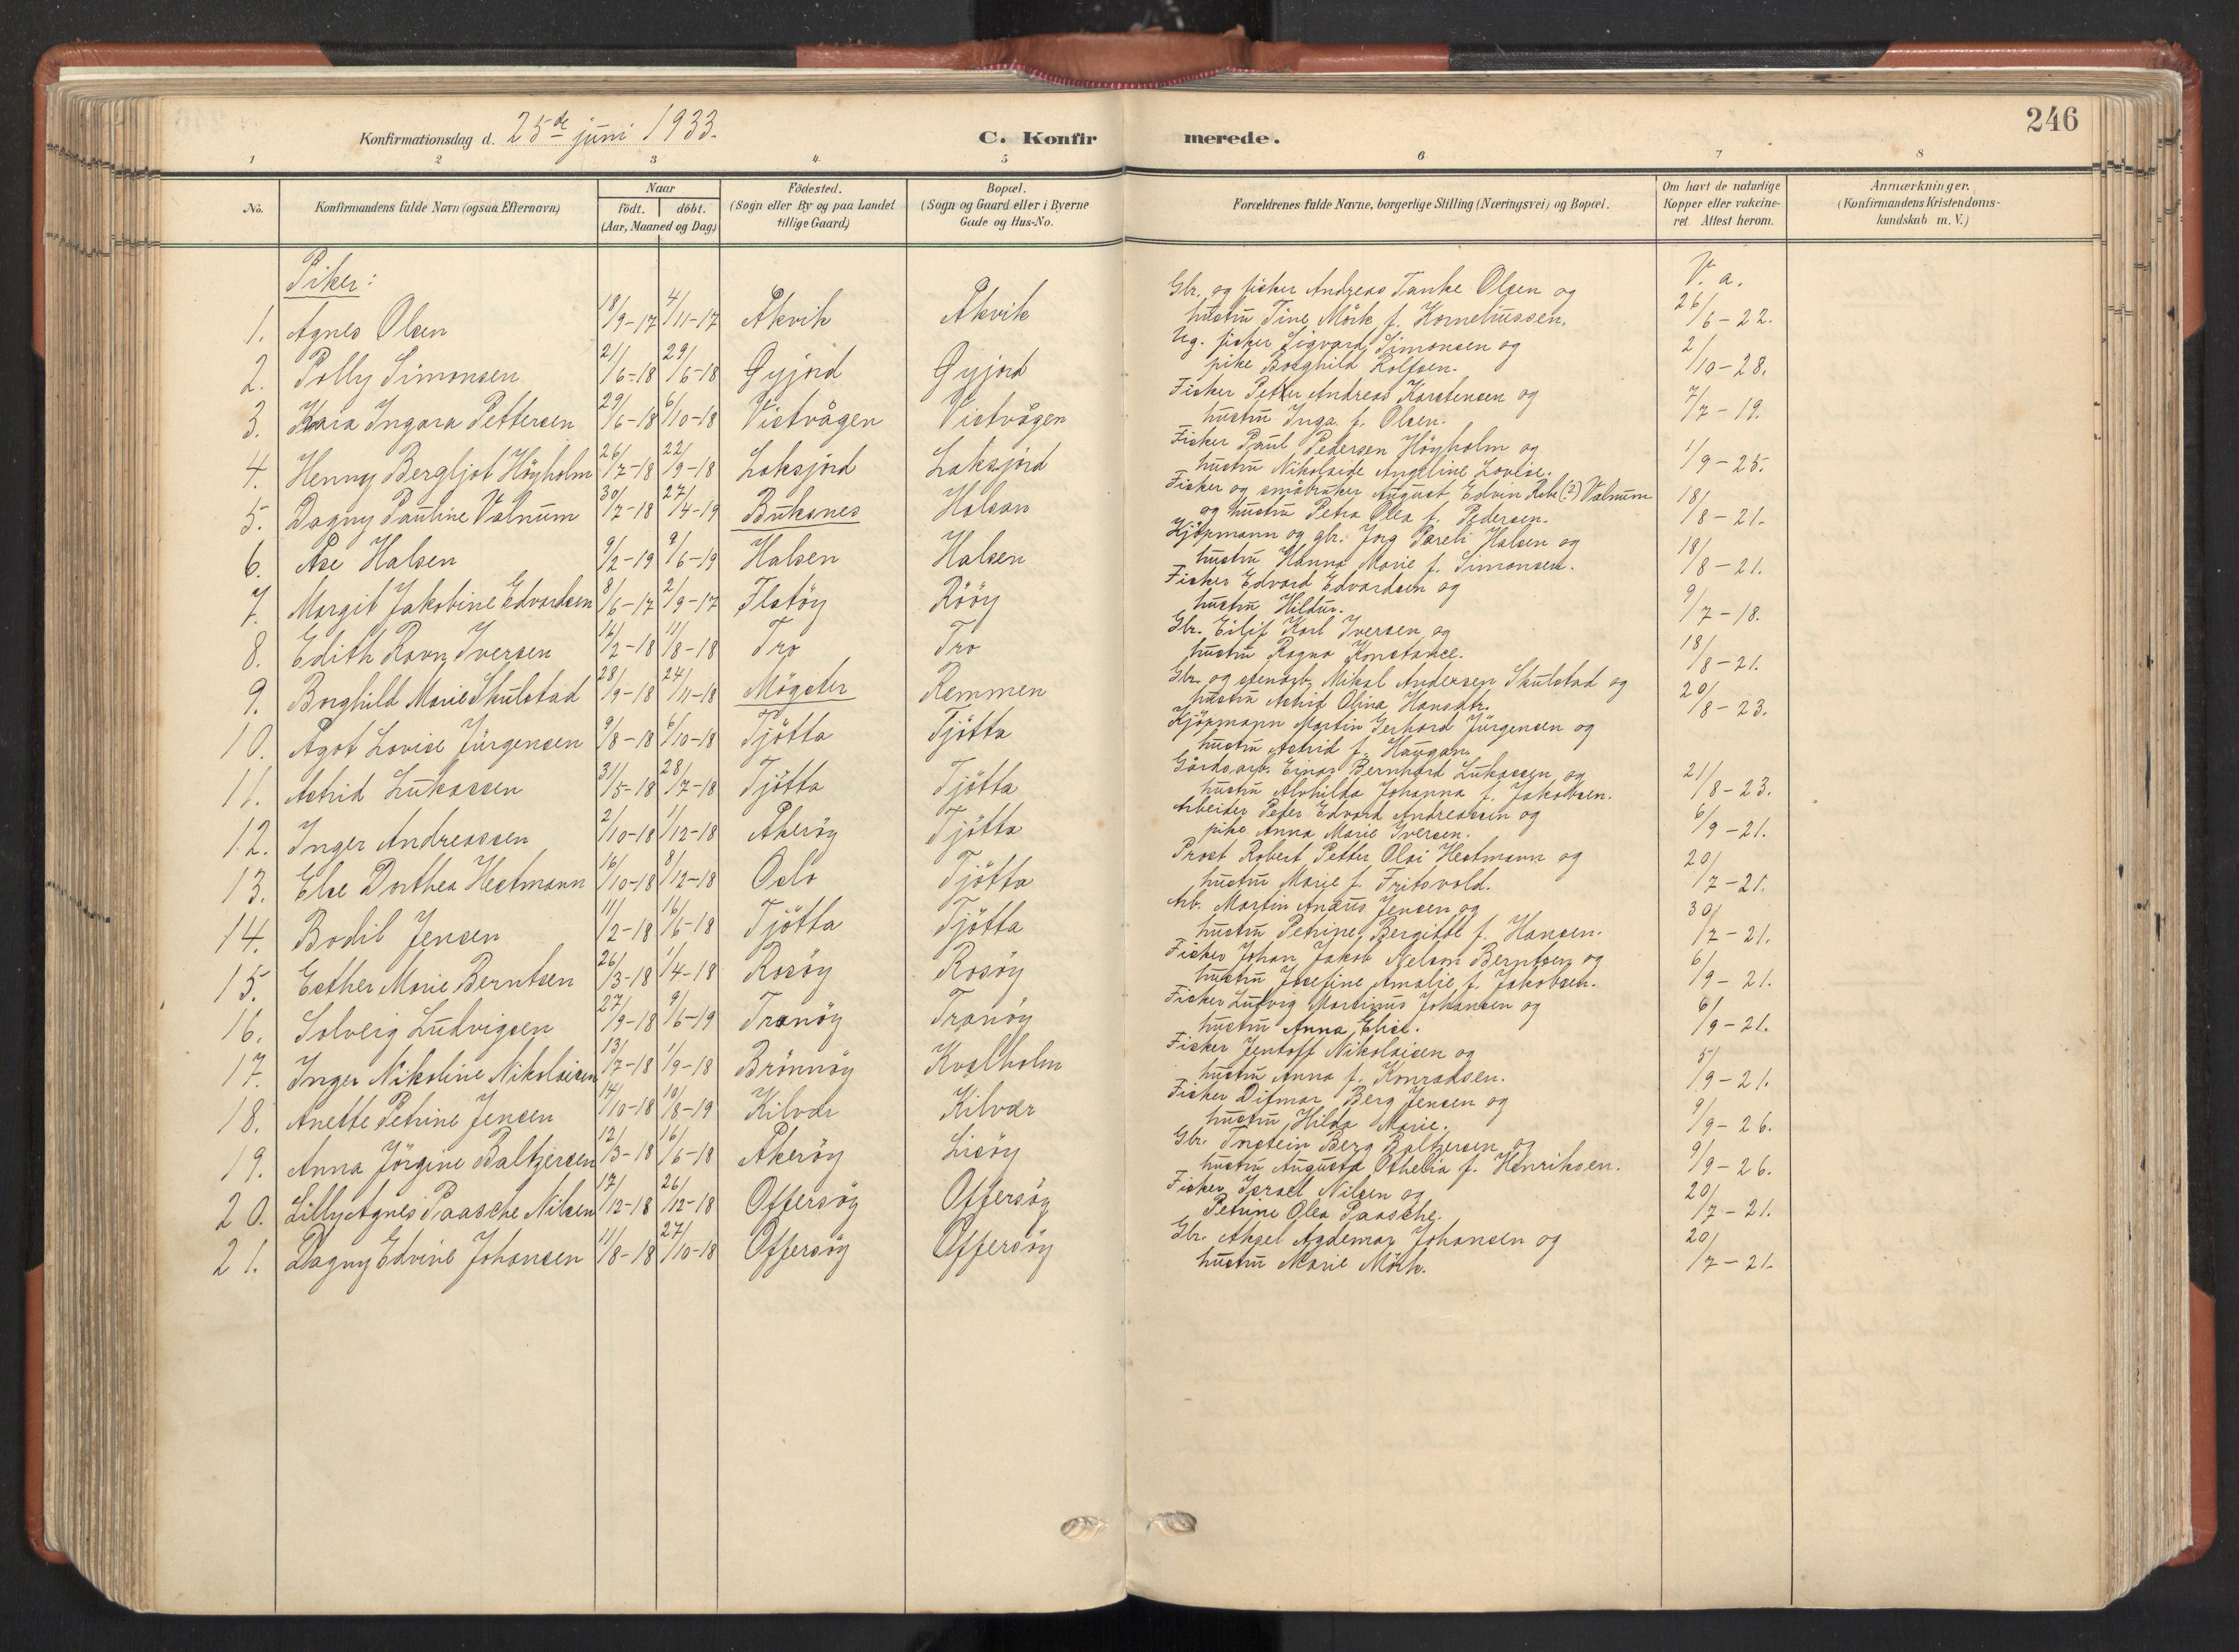 246
Konfirmationsdag d. 25de juni 1933.
C. Konfirmerede.
1 2 3 4 5 6 7 8
No.
Konfirmandens fulde Navn (ogsaa Efternavn)
Naar
födt. döbt.
(Aar, Maaned og Dag)
Födested.
(Sogn eller By og paa Landet
tillige Gaard)
Bopæl.
(Sogn og Gaard eller i Byerne
Gade og Hus-No.
Forældrenes fulde Navne, borgerlige Stilling (Næringsvei) og Bopæl.
Om havt de naturlige
Kopper eller vakcine-
ret. Attest herom.
Anmærkninger.
(Konfirmandens Kristendoms-
kundskab m. V.)
Piker:
V. a.
1. Agnes Olsen 18/9-17 4/11-17 Åkvik Åkvik Gbr. og fisker Andreas Tanke Olsen og
hustru Tine Mörk f. Korneliussen. 26/6-22.
2. Polly Simonsen 21/6-18 29/6-18 Øyjord Øyjord Ug. fisker Sigvard Simonsen og
pike Borghild Rolfsen. 2/10-28.
3. Kara Ingara Pettersen 29/6-18 6/10-18 Vistvågen Vistvågen Fisker Petter Andreas Karstensen og
hustru Inga f. Olsen. 7/7-19.
4. Henny Bergljot Höyholm 26/7-18 22/9-18 Laksjord Laksjord Fisker Paul Pedersen Höyholm og
hustru Nikolaide Angeline Lovise. 1/9-25.
5. Dagny Pauline Valnum 30/7-18 27/4-19 Buksnes Halsan Fisker og småbruker August Edvin Rebe (?) Valnum
og hustru Petra Olea f. Pedersen. 18/8-21.
6. Åse Halsen 9/2-19 9/6-19 Halsen Halsen Kjöpmann og gbr. Jorg Pareli Halsen og
hustru Hanna Marie f. Simonsen. 18/8-21.
7. Margit Jakobine Edvardsen 8/6-17 2/9-17 Flatöy Rööy Fisker Edvard Edvardsen og
hustru Hildur. 9/7-18.
8. Edith Ravn Iversen 16/2-18 11/8-18 Tro Tro Gbr. Eilif Karl Iversen og
hustru Ragna Konstanse. 18/8-21.
9. Borghild Marie Skulstad 28/9-18 24/11-18 Mögster Remmen Gbr. og stenarb. Mikal Andersen Skulstad og
hustru Astrid Olina Hansdtr. 20/8-23.
10. Ågot Lovise Jürgensen 9/8-18 6/10-18 Tjötta Tjötta Kjöpmann Martin Gerhard Jürgensen og
hustru Astrid f. Haugan.
11. Astrid Lukassen 31/5-18 28/7-18 Tjötta Tjötta Gårdsarb. Einar Bernhard Lukassen og
hustru Alvhilda Johanna f. Jakobsen. 21/8-23.
12. Inger Andreassen 2/10-18 1/12-18 Åkeröy Tjötta Arbeider Peter Edvard Andreassen og
pike Anna Marie Iversen. 6/9-21.
13. Else Dorthea Hestmann 16/10-18 8/12-18 Oslo Tjötta Prost Robert Petter Olai Hestmann og
hustru Marie f. Fritsvold. 20/7-21.
14. Bodil Jensen 11/2-18 16/6-18 Tjötta Tjötta Arb. Martin Anæus Jensen og
hustru Petrine Bergitte f. Hansen. 30/7-21.
15. Esther Marie Berntsen 26/3-18 1/4-18 Rosöy Rosöy Fisker Johan Jakob Nelson Berntsen og
hustru Josefine Amalie f. Jakobsen. 6/9-21.
16. Solveig Ludvigsen 27/9-18 9/6-19 Tranöy Tranöy Fisker Ludvig Martinus Johansen og
hustru Anna Elise. 6/9-21.
17. Inger Nikoline Nikolaisen 13/7-18 1/9-18 Brönnöy Kvalholm Fisker Jentoft Nikolaisen og
hustru Anna f. Konradsen. 5/9-21.
18. Anette Petrine Jensen 14/10-18 10/8-19 Kilvær Kilvær Fisker Ditmar Berg Jensen og
hustru Hilda Marie. 9/9-26.
19. Anna Jörgine Baltzersen 12/3-18 16/6-18 Åkeröy Lisöy Gbr. Torstein Berg Baltzersen og
hustru Augusta Othelia f. Henriksen. 9/9-26.
20. Lilly Agnes Paasche Nilsen 17/12-18 26/12-18 Offersöy Offersöy Fisker Israel Nilsen og
Petrine Olea Paasche. 20/7-21.
21. Dagny Edvine Johansen 11/8-18 27/10-18 Offersöy Offersöy Gbr. Aksel Agdemar Johansen og
hustru Marie Mörk. 20/7-21.